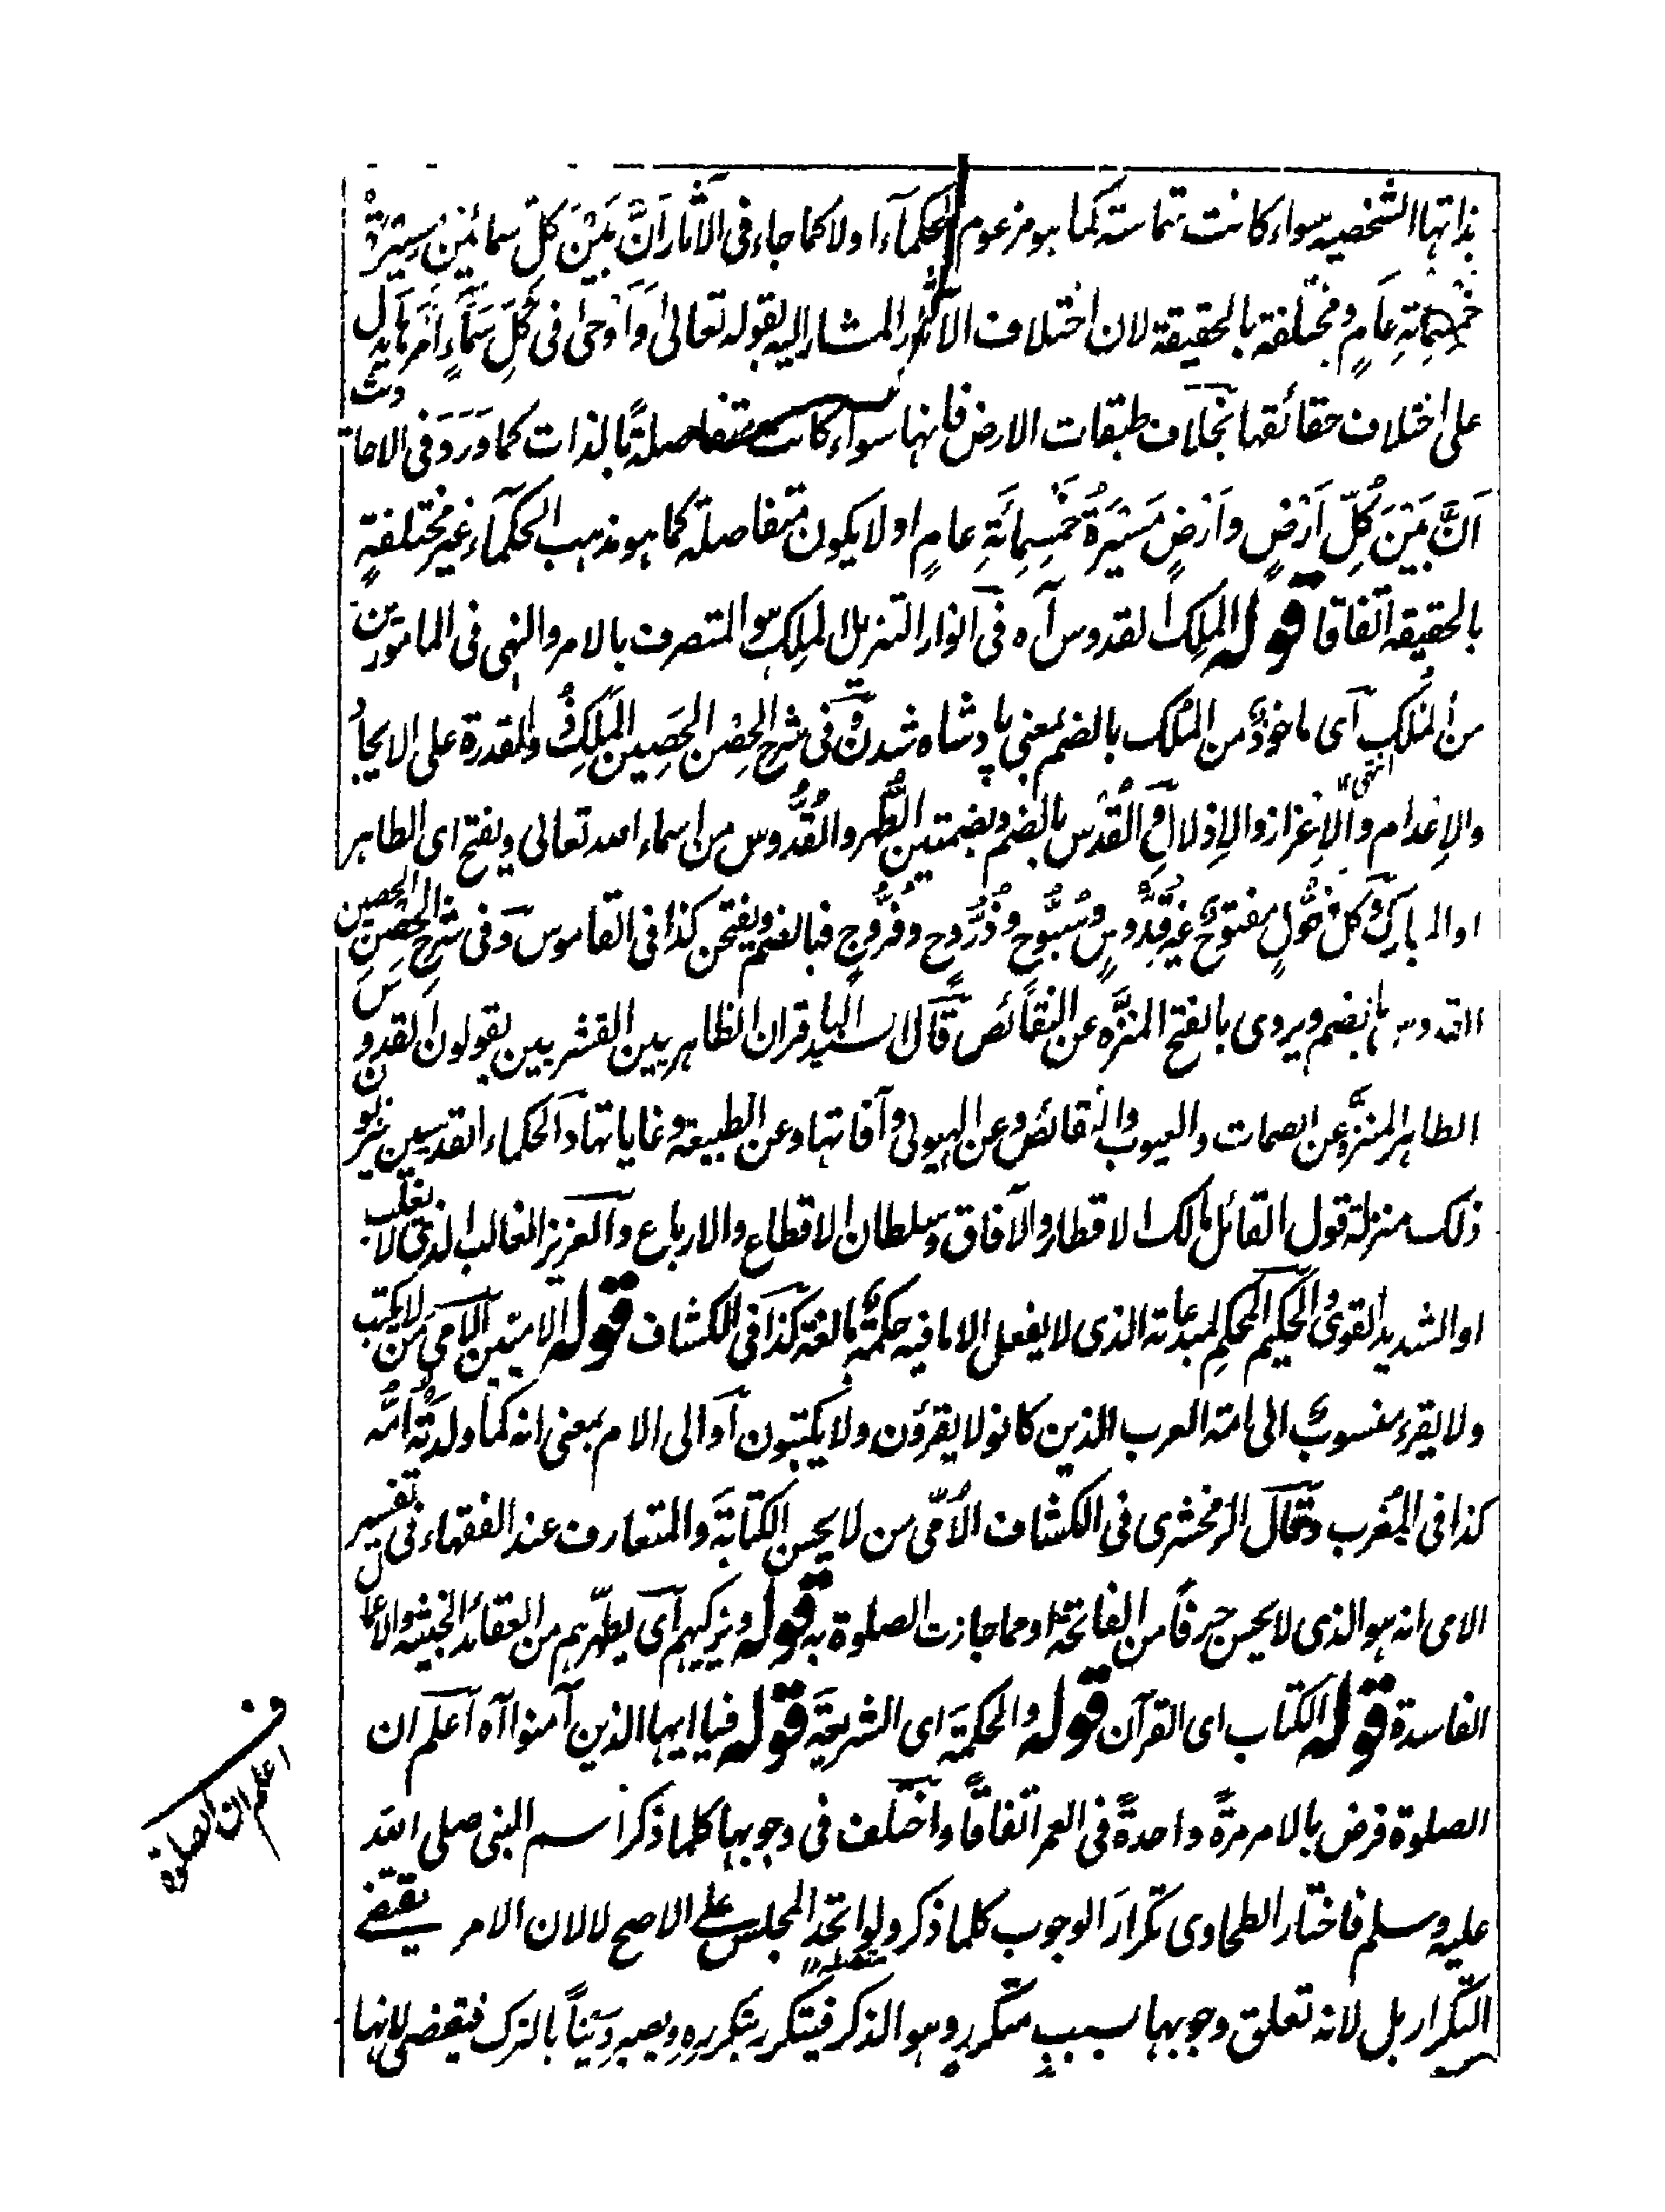 بذاتها الشخصيه سواء كانت متماسته كما هو مزعوم الحكماء اولا كما جاء فى الآثار اَنَّ بَيْنَ كلّ سمائَينِ مسيَرةُ
خمسِمائةِ عَامٍ ومختلفة بالحقيقة لان اختلاف الآثار المشار اليه بقوله تعالىٰ وَاَوْحىٰ فى كُلِّ سَمَاءٍ اَمْرَهَا يدل
على اختلاف حقائقها بخلاف طبقات الارض فانها سواء كانت متفاصلةً بالذات كما وَرَدَ فى الاحاديث
اَنَّ بَيْنَ كُلِّ اَرْضٍ واَرْضٍ مَسَيْرَةُ خَمْسِمِائَةِ عامٍ اولا يكون متفاصلة كما هو مذهب الحكماء غير مختلفةٍ
بالحقيقه اتفاقا قوله الملِك القدوس آه فى انوار التنزيل الملِك هو المتصرف بالامر والنهى فى المامورين
من المُلك اى ماخوذ من المُلك بالضم بمعنى پادشاه شدن وفى شرح الحِصْن الحَصِين المَلِكُ ذو القدرة على الايجاد
والاِعْدام والاِعْزاز والاِذلال انتهى والقُدْس بالضم وبضمتين الطُّهر والقُدُّوس من اسماء الله تعالى ويفتح اى الطاهر
او المبارك وكل فَعُّولٍ مفتوح غير قُدُّوسٍ وسُبُّوحٍ وذُرُّوحٍ وفُرُّوجٍ فبالضم ويفتحن كذا فى القاموس وفى شرح الحِصْنِ الحصين
القدوس بالضم ويروى بالفتح المنزَّه عن النقائص قال السيد الباقر ان الظاهريين القشريين يقولون القدوس
الطاهر المنزه عن الصمات والعيوب والنقائص وعن الهيولى وآفاتها وعن الطبيعة وغاياتها والحكماء القدسيين ينزلون
ذلك منزلة قول القائل مالك الاقطار والآفاق وسلطان الاقطاع والارباع والعزيز الغالب الذى لا يغلب
او الشديد القوى والحكيم المحكم لمبدعاته الذى لا يفعل الا ما فيه حكمة بالغة كذا فى الكشاف قوله الاميين الامى من لا يكتب
ولا يقرء منسوب الى امة العرب الذين كانوا لا يقرؤن ولا يكتبون او الى الام بمعنى انه كما ولدَتْه اُمُّه
كذا فى المُغرب وقال الزمخشرى فى الكشاف الاُمّى من لا يحسن الكتابَةَ والمتعارف عند الفقهاء فى تفسير
الامى انه هو الذى لا يحسن حرفاً من الفاتحة او مما جازت الصلوة به قوله ويزكيهم اى يطهّرهم من العقائد الخبيثه والاعمال
الفاسدة قوله الكتاب اى القرآن قوله والحكمة اى الشريعة قوله فيا ايها الذين آمنوا آه اعلم ان
الصلوة فرض بالامر مرةً واحدةً فى العمر اتفاقاً واختلف فى وجوبها كلما ذكر اسم النبى صلى الله
عليه وسلم فاختار الطحاوى تكرارَ الوجوب كلما ذكر ولو اتحد المجلس على الاصح لا لان الامر يقتضے
التكرار بل لانه تعلق وجوبها بسببٍ متكررٍ وهو الذكر فيتكرر بتكررِهِ ويصير دَيْناً بالترك فتقضى لانها
ف
اعلم ان الصلوة